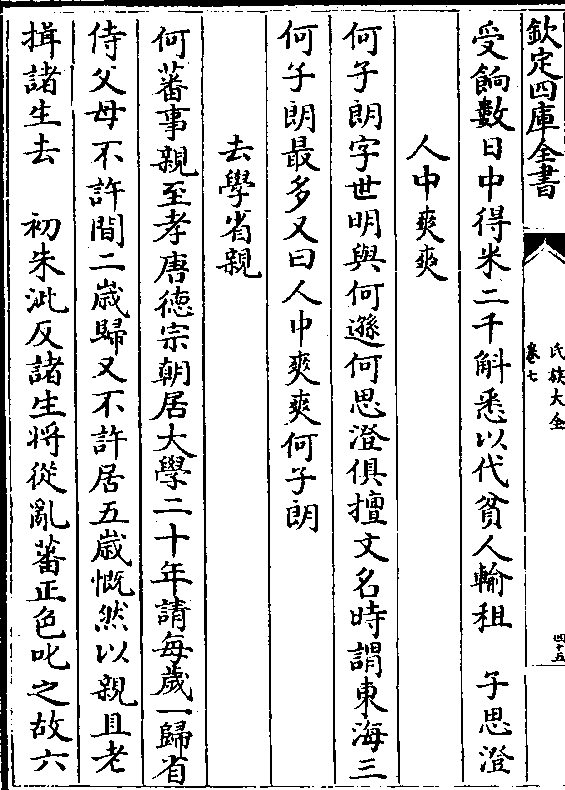 欽定四庫全書
氏族大全
卷七
四十五
受餉數日中得米二千斛悉以代貧人輸租　子思澄
人中爽爽
何子朗字世明與何遜何思澄俱擅文名時謂東海三
何子朗最多又曰人中爽爽何子朗
去學省親
何蕃事親至孝唐德宗朝居大學二十年請每歲一歸省
侍父母不許間二歲歸又不許居五歲慨然以親且老
揖諸生去　初朱泚反諸生將從亂蕃正色叱之故六